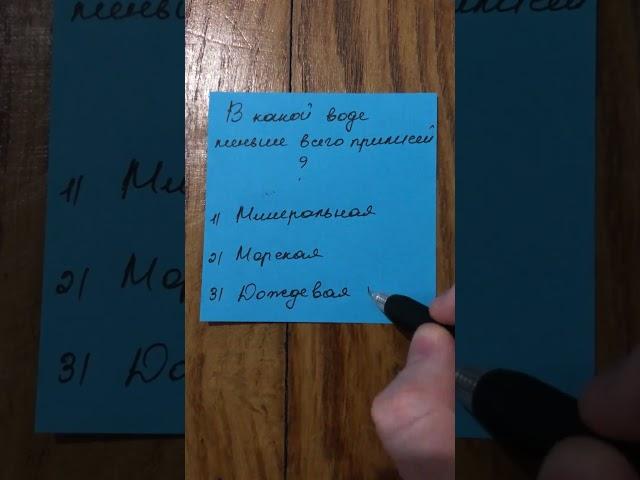 В какой воде
меньше всего примесей
?
1) Минеральная
2) Морская
3) Дождевая